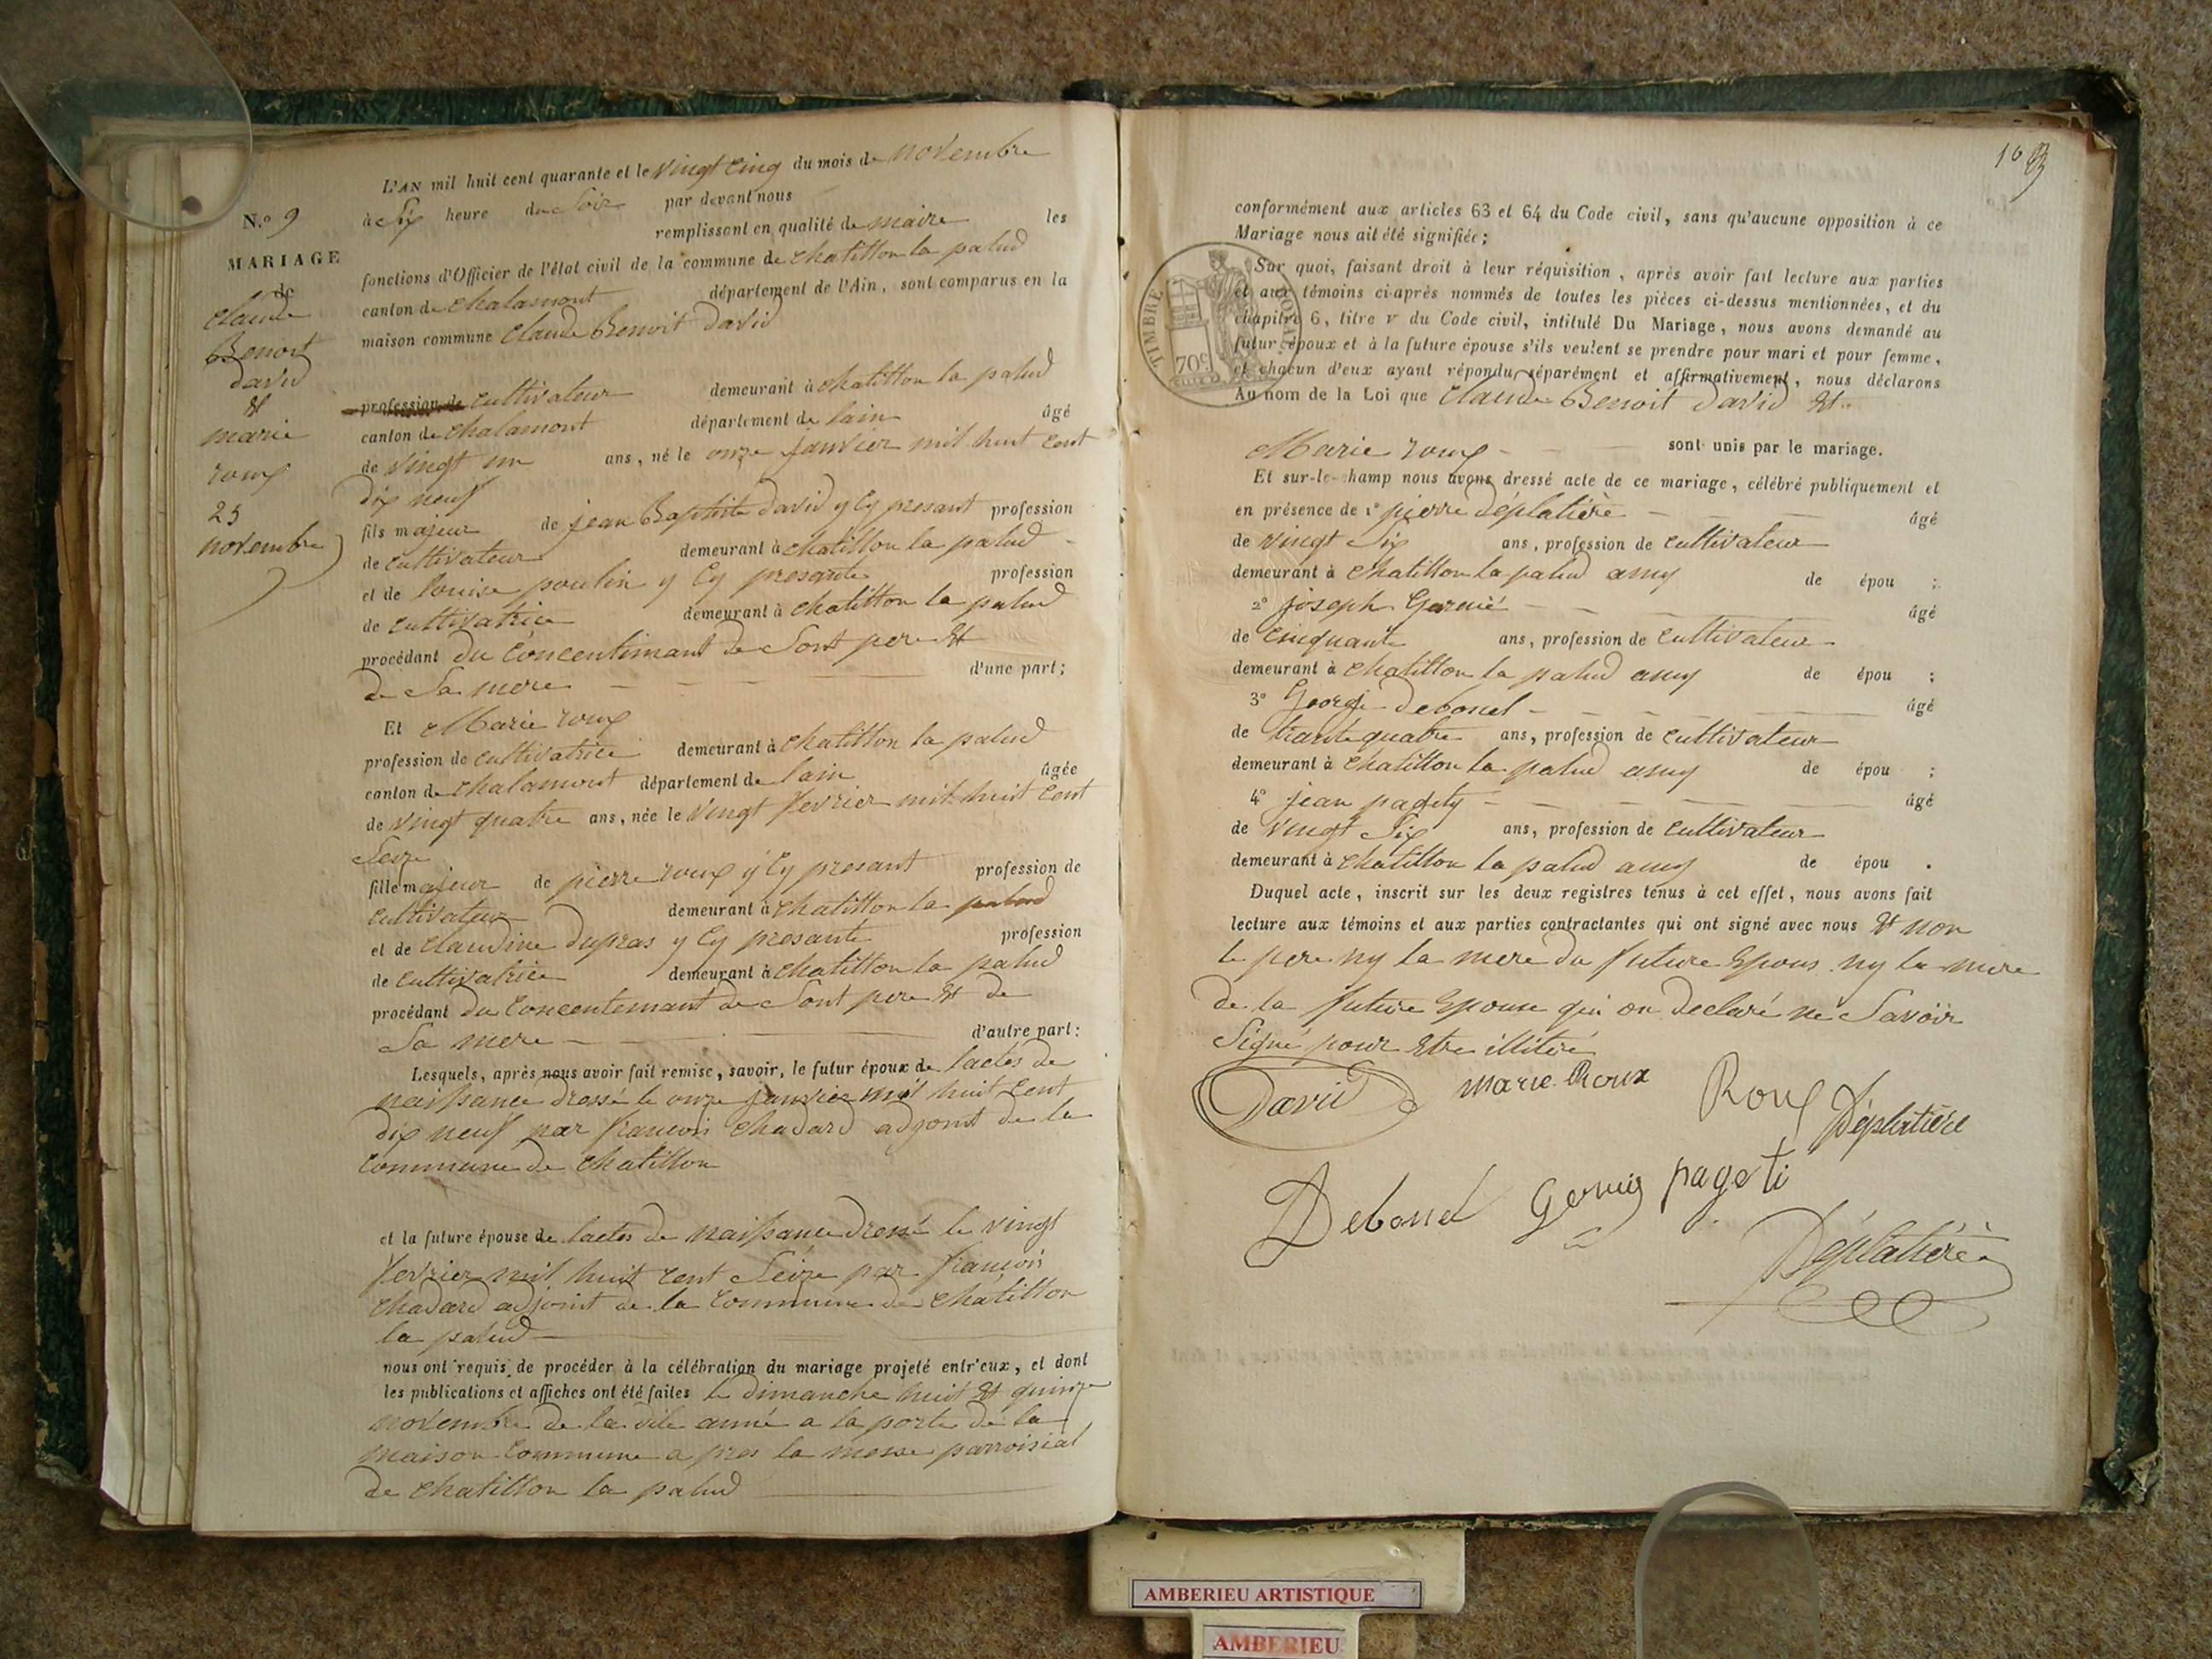 L'AN mil huit cent quarante et le vingt cinq du mois de novembre
à Six heure du Soir par devant nous
remplissant en qualité de maire les
fonctions d'Officier de l'état civil de la commune de chatillon la palud
canton de chalamont département de l'Ain, sont comparus en la
maison commune Claude Benoit david
profession de cultivateur demeurant à chatillon la palud
canton de chalamont département de lain âgé
de vingt un ans, né le onze janvier mil huit cent
dix neuf
fils majeur de jean Baptiste david y Cy presant profession
de cultivateur demeurant à chatillon la palud
et de louise poulin y Cy presante profession
de cultivatrice demeurant à chatillon la palud
procédant du Concentimant de Sont pere et
de Sa mere d'une part;
Et Marie roux
profession de cultivatrice demeurant à chatillon la palud
canton de chalamont département de lain âgée
de vingt quatre ans, née le vingt fevrier mil huit cent
Seize
fille majeur de pierre roux y Cy presant profession de
cultivateur demeurant à chatillon la palud
et de claudine dupras y Cy presante profession
de cultivatrice demeurant à chatillon la palud
procédant du Concentemant de Sont pere et de
Sa mere d'autre part:
Lesquels, après nous avoir fait remise, savoir, le futur époux de lactes de
naissance dressé le onze janvier mil huit cent
dix neuf par francois chadard adjoint de la
commune de chatillon
et la future épouse de lactes de naissance dressé le vingt
fevrier mil huit cent Seize par francois
chadard adjoint de la Commune de chatillon
la palud
nous ont requis de procéder à la célébration du mariage projeté entr'eux, et dont
les publications et affiches ont été faites le dimanche huit et quinze
novembre de la dite anné a la porte de la
maison commune a pres la messe parroisial
de chatillon la palud
N.o 9
MARIAGE
de
claude
Benoit
david
et
marie
roux
25
novembre
conformément aux articles 63 et 64 du Code civil, sans qu'aucune opposition à ce
Mariage nous ait été signifiée;
Sur quoi, faisant droit à leur réquisition, après avoir fait lecture aux parties
et aux témoins ci-après nommés de toutes les pièces ci-dessus mentionnées, et du
chapitre 6, titre v du Code civil, intitulé Du Mariage, nous avons demandé au
futur époux et à la future épouse s'ils veulent se prendre pour mari et pour femme,
et chacun d'eux ayant répondu séparément et affirmativement, nous déclarons
Au nom de la Loi que Claude Benoit david et
Marie roux sont unis par le mariage.
Et sur-le-champ nous avons dressé acte de ce mariage, célébré publiquement et
en présence de 1o pierre déplatière âgé
de vingt Six ans, profession de cultivateur
demeurant à chatillon la palud amy de épou ;
2o joseph Garnié âgé
de cinquante ans, profession de cultivateur
demeurant à chatillon la palud amy de épou ;
3o George debonel âgé
de trante quatre ans, profession de cultivateur
demeurant à chatillon la palud amy de épou ;
4o jean pagety âgé
de vingt Six ans, profession de cultivateur
demeurant à chatillon la palud amy de épou .
Duquel acte, inscrit sur les deux registres tenus à cet effet, nous avons fait
lecture aux témoins et aux parties contractantes qui ont signé avec nous et non
le pere ny la mere du future Epous ny la mere
de la future Epouse qui on declaré ne Savoir
Signé pour etre illitéré
David marie Roux Roux Déplatière
Debonel pageti
Déplatière
TIMBRE ROYAL
70c
AMBERIEU ARTISTIQUE
AMBERIEU